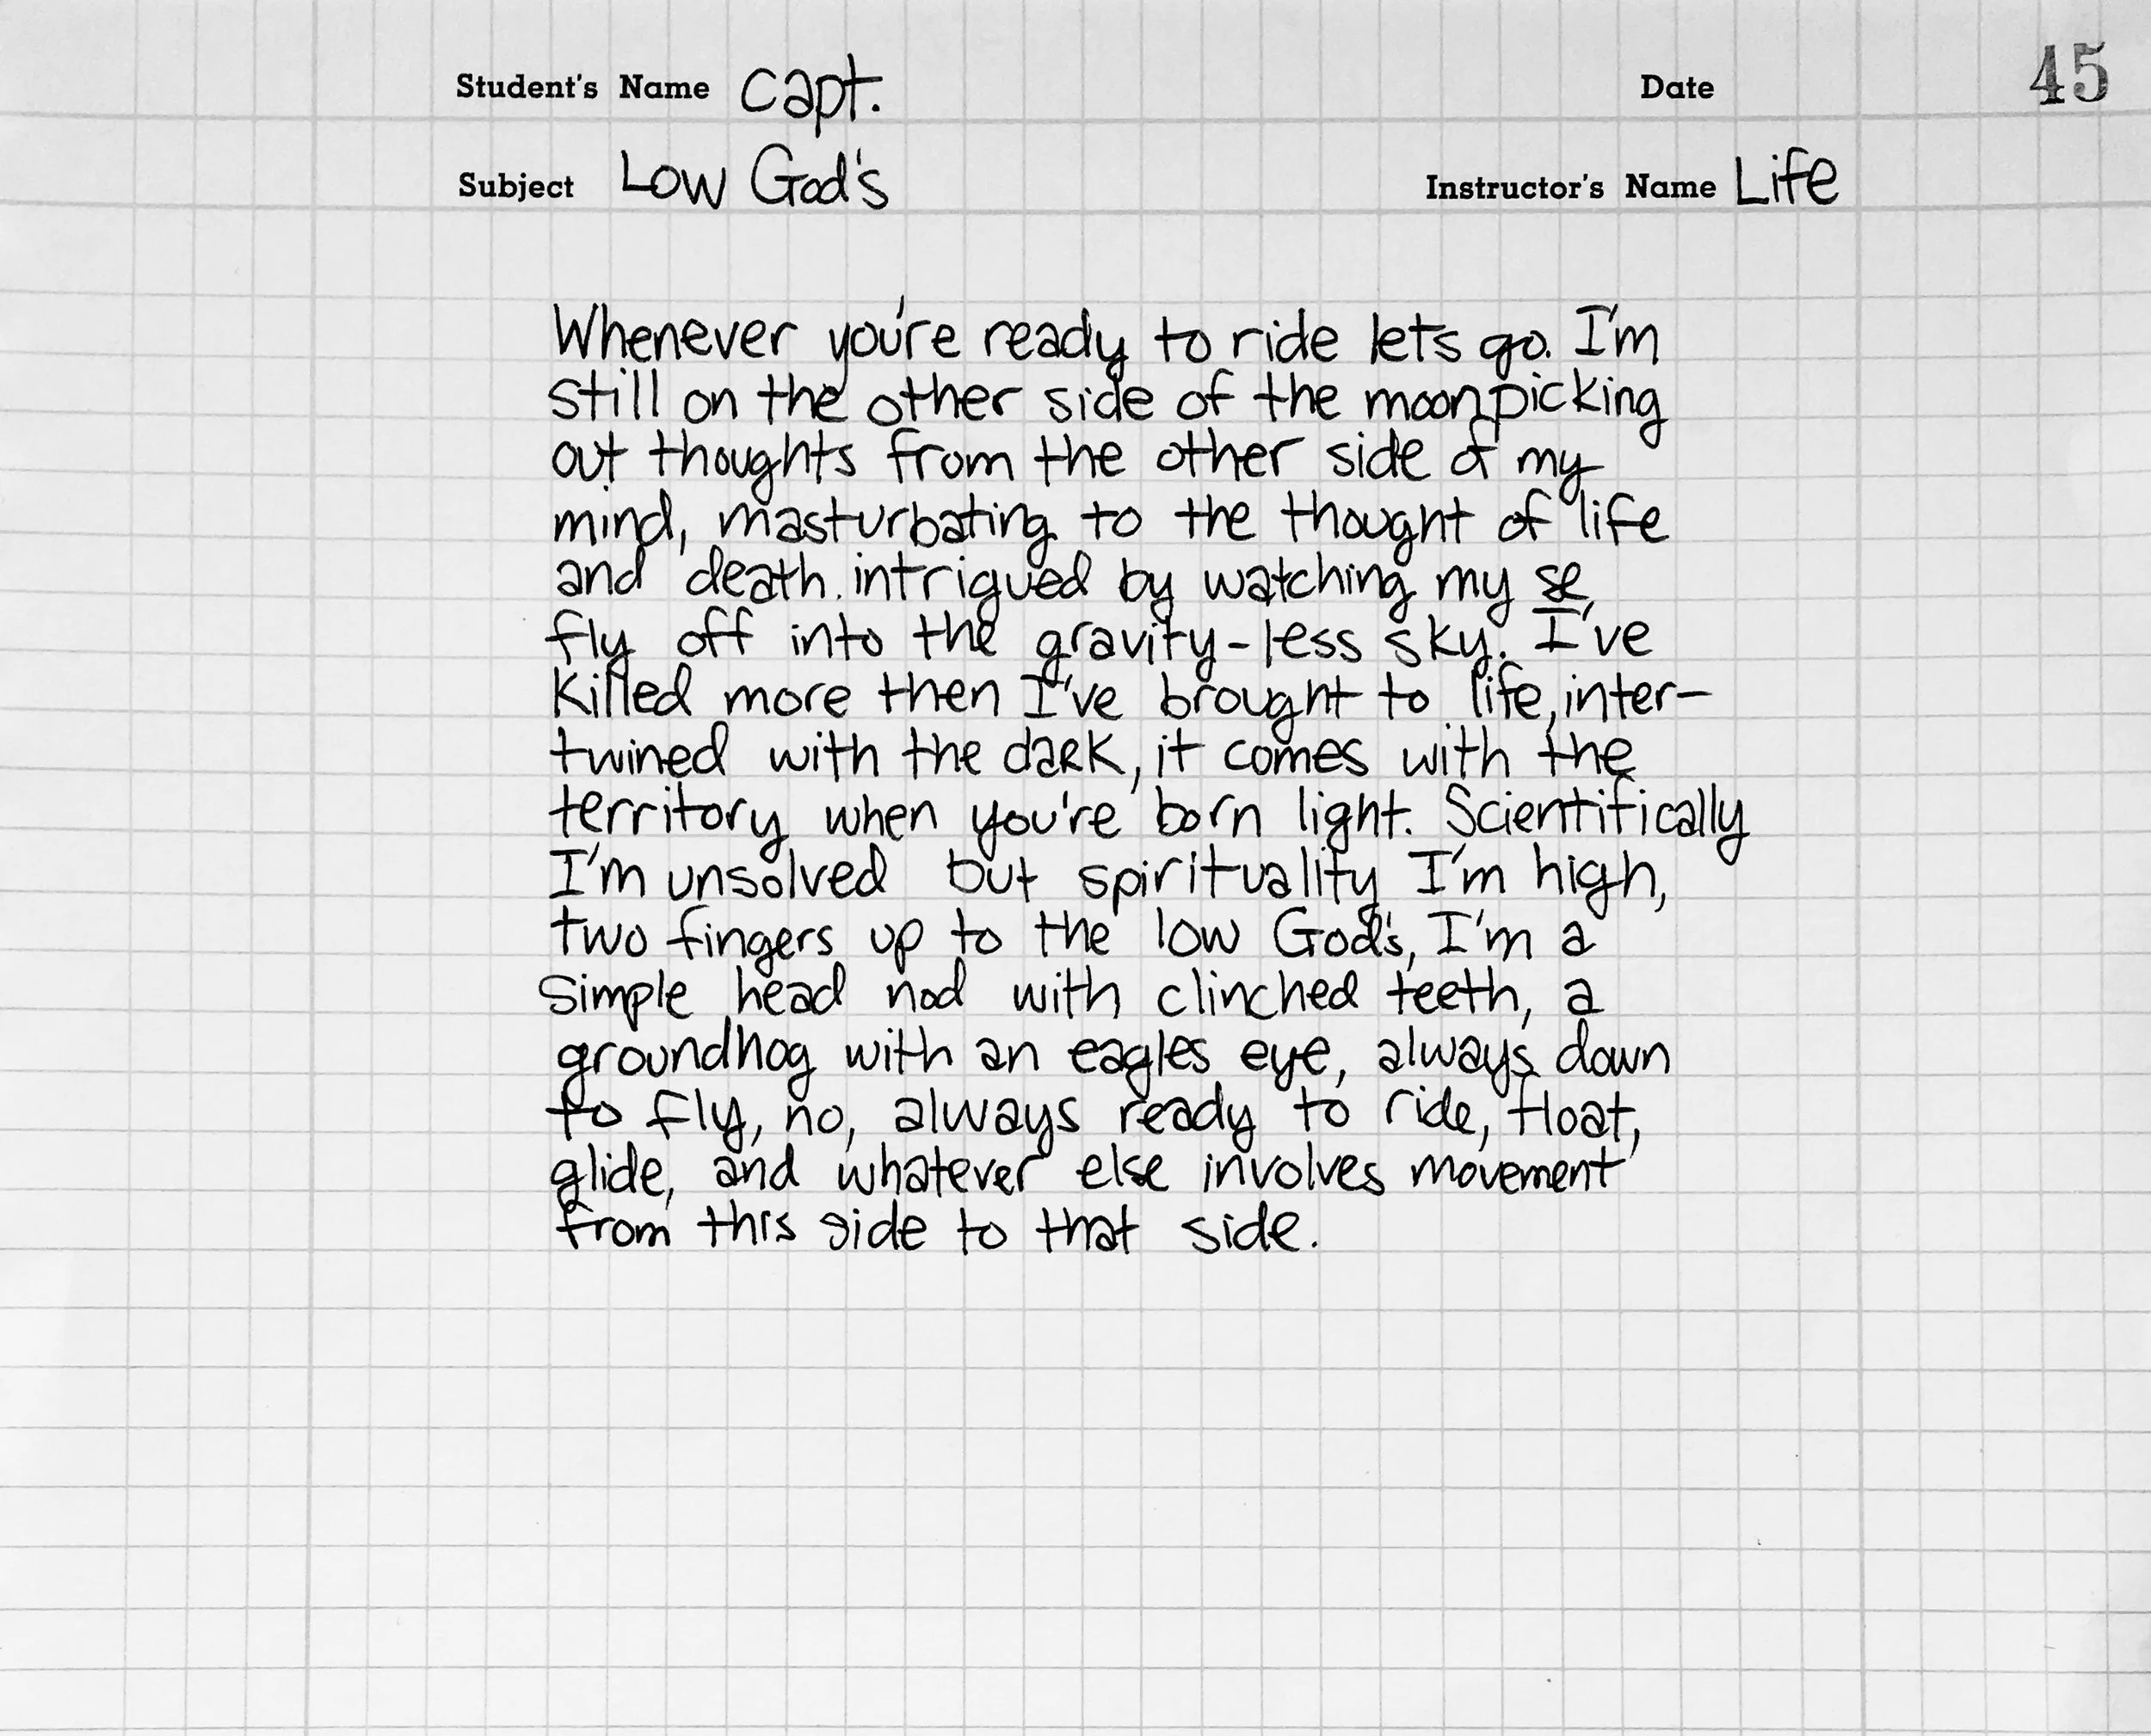 Student's Name capt. Date 45
Subject Low God's Instructor's Name Life
Whenever you're ready to ride let's go. I'm
still on the other side of the moon picking
out thoughts from the other side of my
mind, masturbating to the thought of life
and death. intrigued by watching my se,
fly off into the gravity-less sky. I've
killed more then I've brought to life, inter-
twined with the dark, it comes with the
territory when you're born light. Scientifically
I'm unsolved but spirituality I'm high,
two fingers up to the low God's, I'm a
simple head nod with clinched teeth, a
groundhog with an eagles eye, always down
to fly, no, always ready to ride, float,
glide, and whatever else involves movement
from this side to that side.